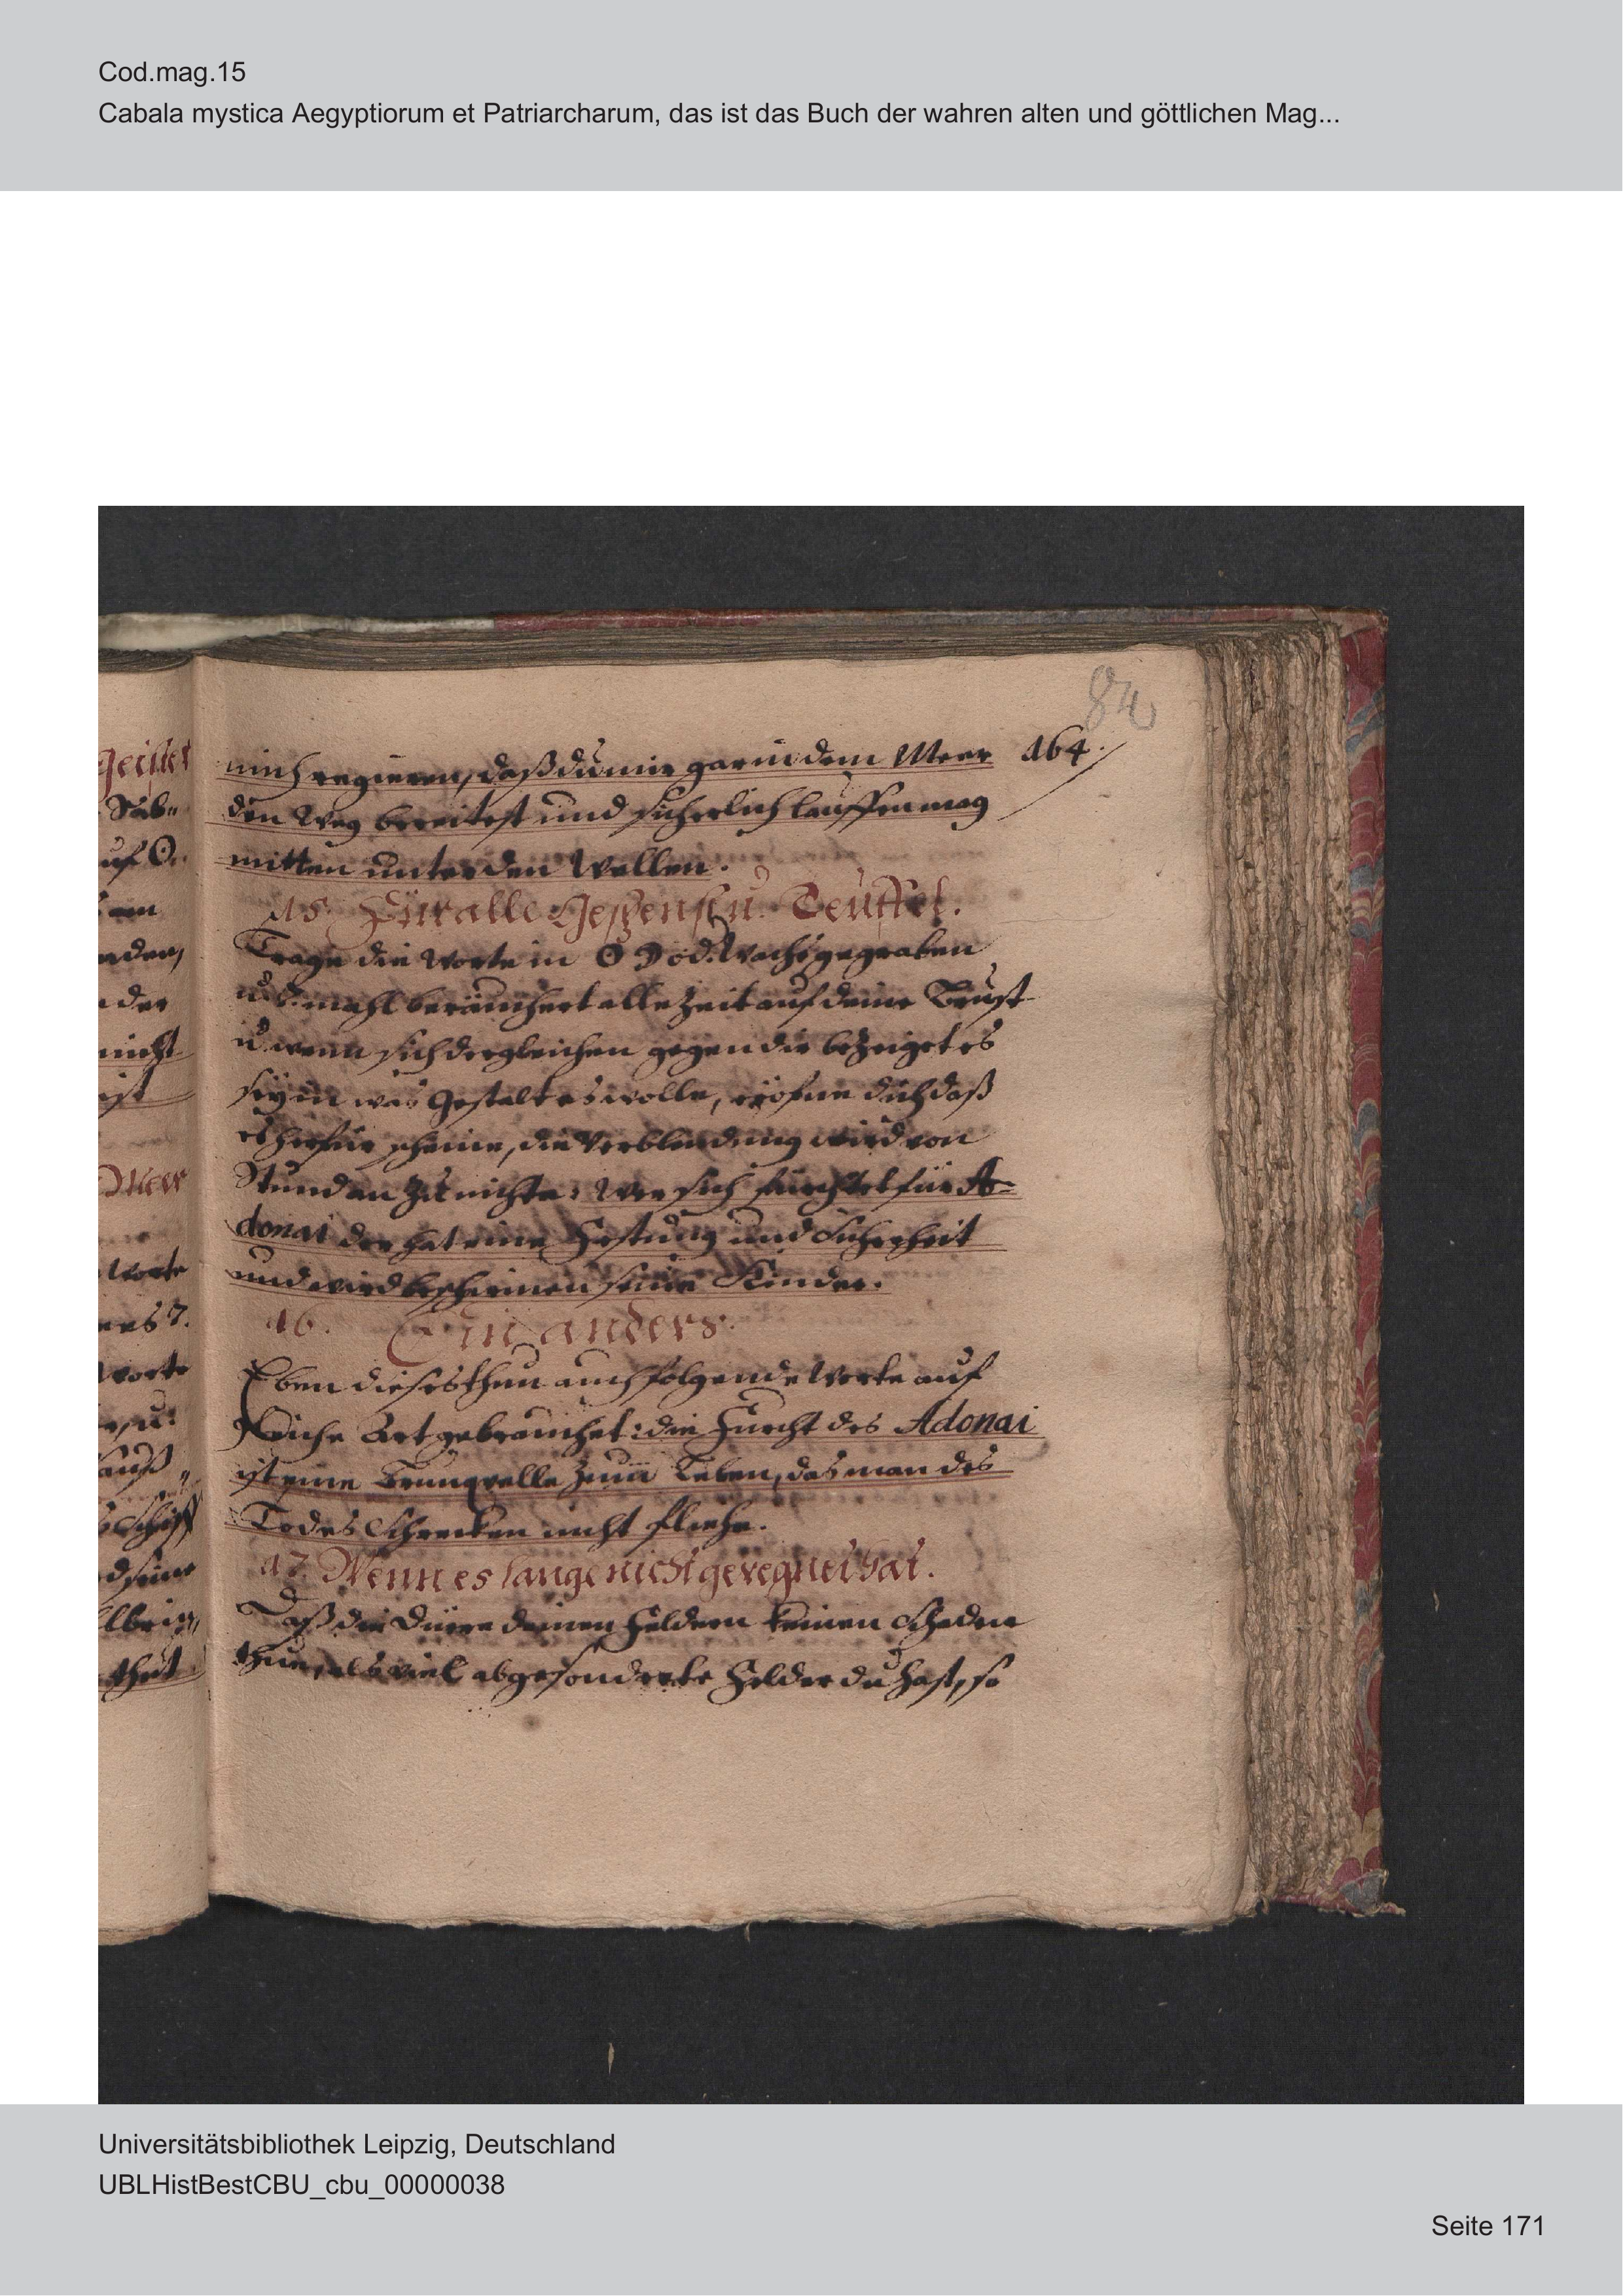 Cod.mag.15
Cabala mystica Aegyptiorum et Patriarcharum, das ist das Buch der wahren alten und göttlichen Mag...
84
mich regieren, daß du mir gar in dem Meer 164.
den Weg bereitest und sicherlich lauffen mag
mitten unter den Wellen.
15. Für alle Gespenst u. Teuffel.
Trage die Worte in ☉ ☽ od. Wachs gegraben
u. mahl beräuchert alle Zeit auf deiner Brust
u. wenn sich dergleichen gegen dir bezeiget es
sey in was Gestalt es wolle, eröfne dich daß
es herfür scheine, die Verblendung wird von
Stund an zu nichte: Wer sich fürchtet für A-
donai der hat eine Festung und Sicherheit
und wird beschirmen seine Kinder.
16. Ein anders.
Eben dieses thun auch folgende Worte auf
gleiche Art gebrauchet: die Furcht des Adonai
ist eine Brunqvelle zum Leben, das man des
Todes Schrecken nicht fliehe.
17. Wenn es lange nicht geregnet hat.
Daß die Dürre deinen Feldern keinen Schaden
thue, als viel abgesonderte Felder du hast, so
Universitätsbibliothek Leipzig, Deutschland
UBLHistBestCBU_cbu_00000038
Seite 171